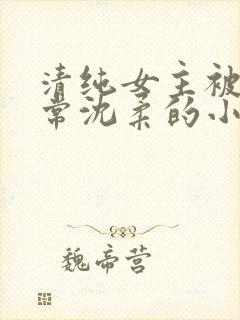 清纯女主被
常沈柔的小
魏帝营